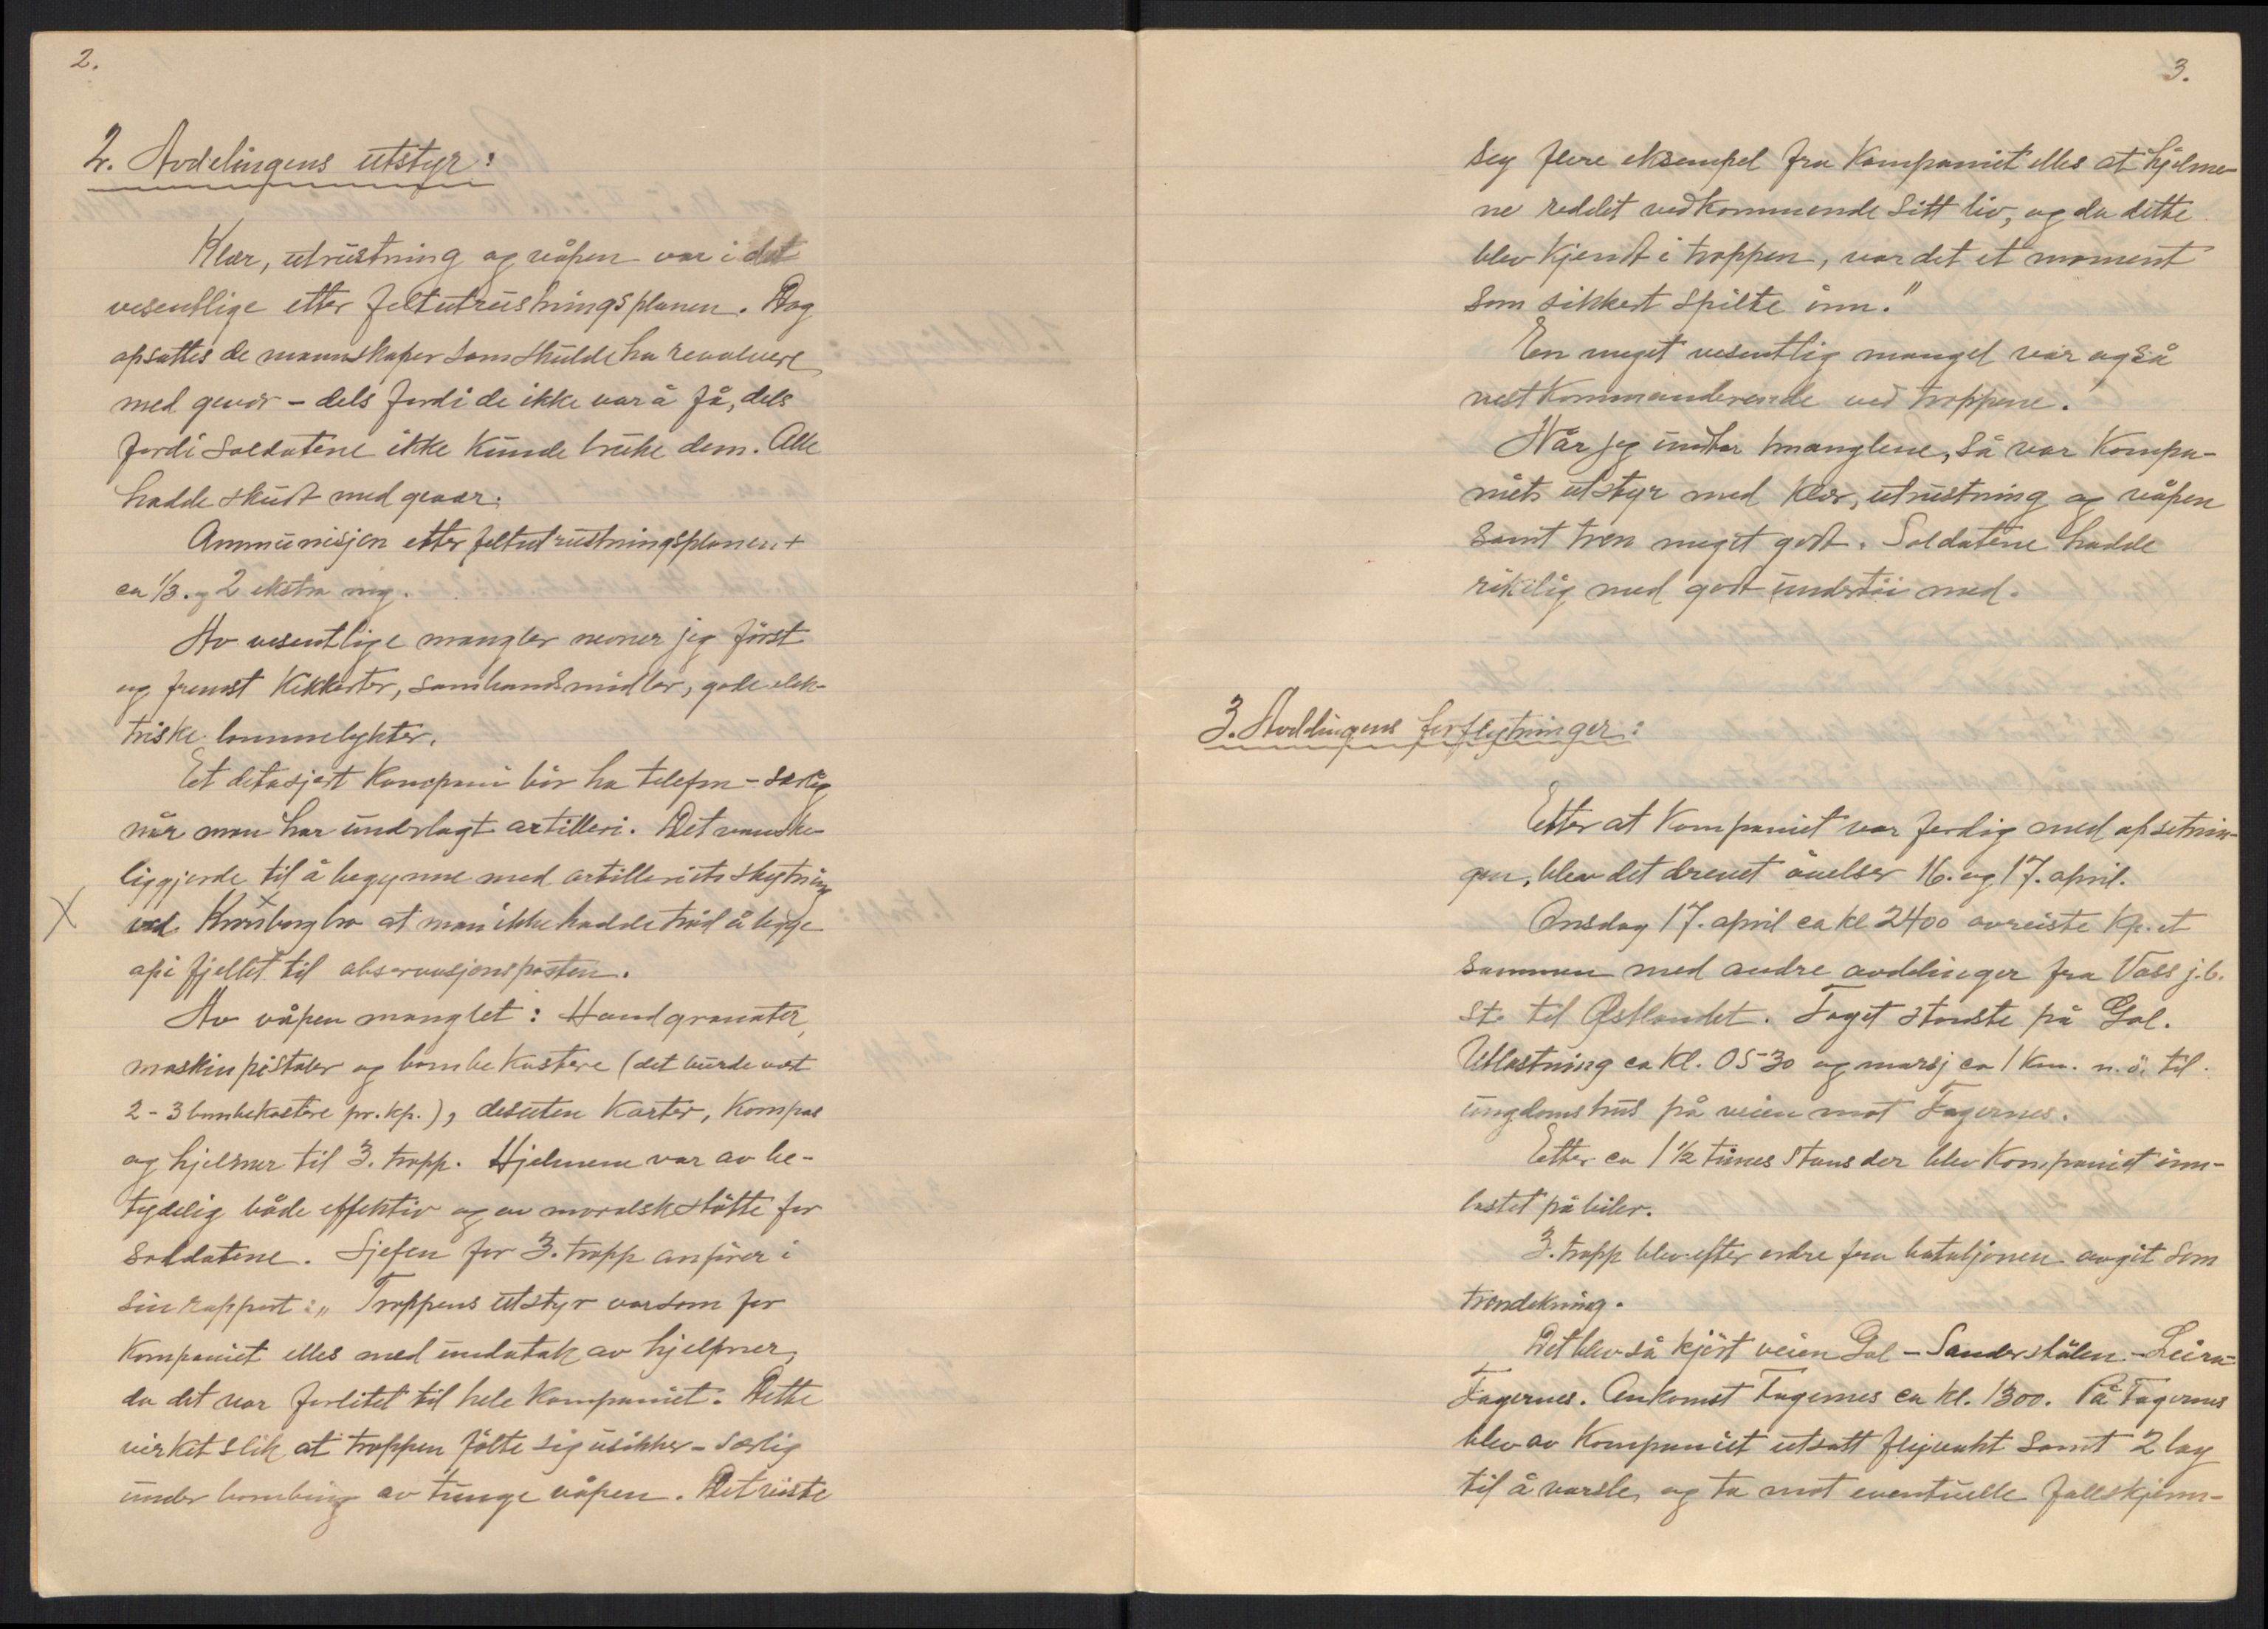 2.
2. Avdelingens utstyr:
Klær, utrustning og våpen var i det
vesentlige etter feltutrustningsplanen. Dog
opsattes de mannskaper som skulde ha revolvere
med gevær - dels fordi de ikke var å få, dels
fordi soldatene ikke kunde bruke dem. Alle
hadde skudt med gevær.
Ammunisjon etter feltutrustningsplanen +
ca 1/3. og 2 ekstra mg.
Av vesentlige mangler nevner jeg først
og fremst kikkerter, sambandsmidler, gode elek-
triske lommelykter.
Et detasjert kompani bör ha telefon - særlig
når man har underlagt artilleri. Det vanske-
liggjorde til å begynne med artilleriets skytning
X ved Kvisberg bro at man ikke hadde tråd å legge
op i fjellet til observasjonsposten.
Av våpen manglet: Handgranater,
maskinpistoler og bombekastere (det burde vært
2-3 bombekastere pr. kp.), desuten karter, kompas
og hjelmer til 3. tropp. Hjelmene var av be-
tydelig både effektiv og en moralsk støtte for
soldatene. Sjefen for 3. tropp anförer i
sin rapport: „Troppens utstyr var som for
kompaniet elles med undatak av hjelmer,
da det var forlitet til hele kompaniet. Dette
virket slik at troppen fölte sig usikker - særlig
under bombing av tunge våpen. Det viste
3.
seg flere eksempel fra kompaniet elles at hjelme-
ne reddet vedkommende sitt liv, og da dette
blev kjendt i troppen, var det et moment
som sikkert spilte inn."
En meget vesentlig mangel var også
nestkommanderende ved troppene.
Når jeg undtar manglene, så var kompa-
niets utstyr med klær, utrustning og våpen
samt tren meget godt. Soldatene hadde
rikelig med godt undertöi med.
3. Avdelingens forflytninger:
Etter at kompaniet var ferdig med opsetnin-
gen, blev det drevet övelser 16. og 17. april.
Onsdag 17. april ca kl 2400 avreiste kp.et
sammen med andre avdelinger fra Voss j.b.
st. til Østlandet. Toget stanste på Gol.
Utlastning ca kl. 0530 og marsj ca 1 km. n.ö. til
ungdomshus på veien mot Fagernes.
Etter ca 1 1/2 times stans der blev kompaniet inn-
lastet på biler.
3. tropp blev efter ordre fra bataljonen avgit som
trendekning.
Det blev så kjört veien Gol - Sanderstölen - Leira -
Fagernes. Ankomst Fagernes ca kl. 1300. På Fagernes
blev av kompaniet utsatt flyvakt samt 2 lag
til å varsle, og ta mot eventuelle fallskjerm-